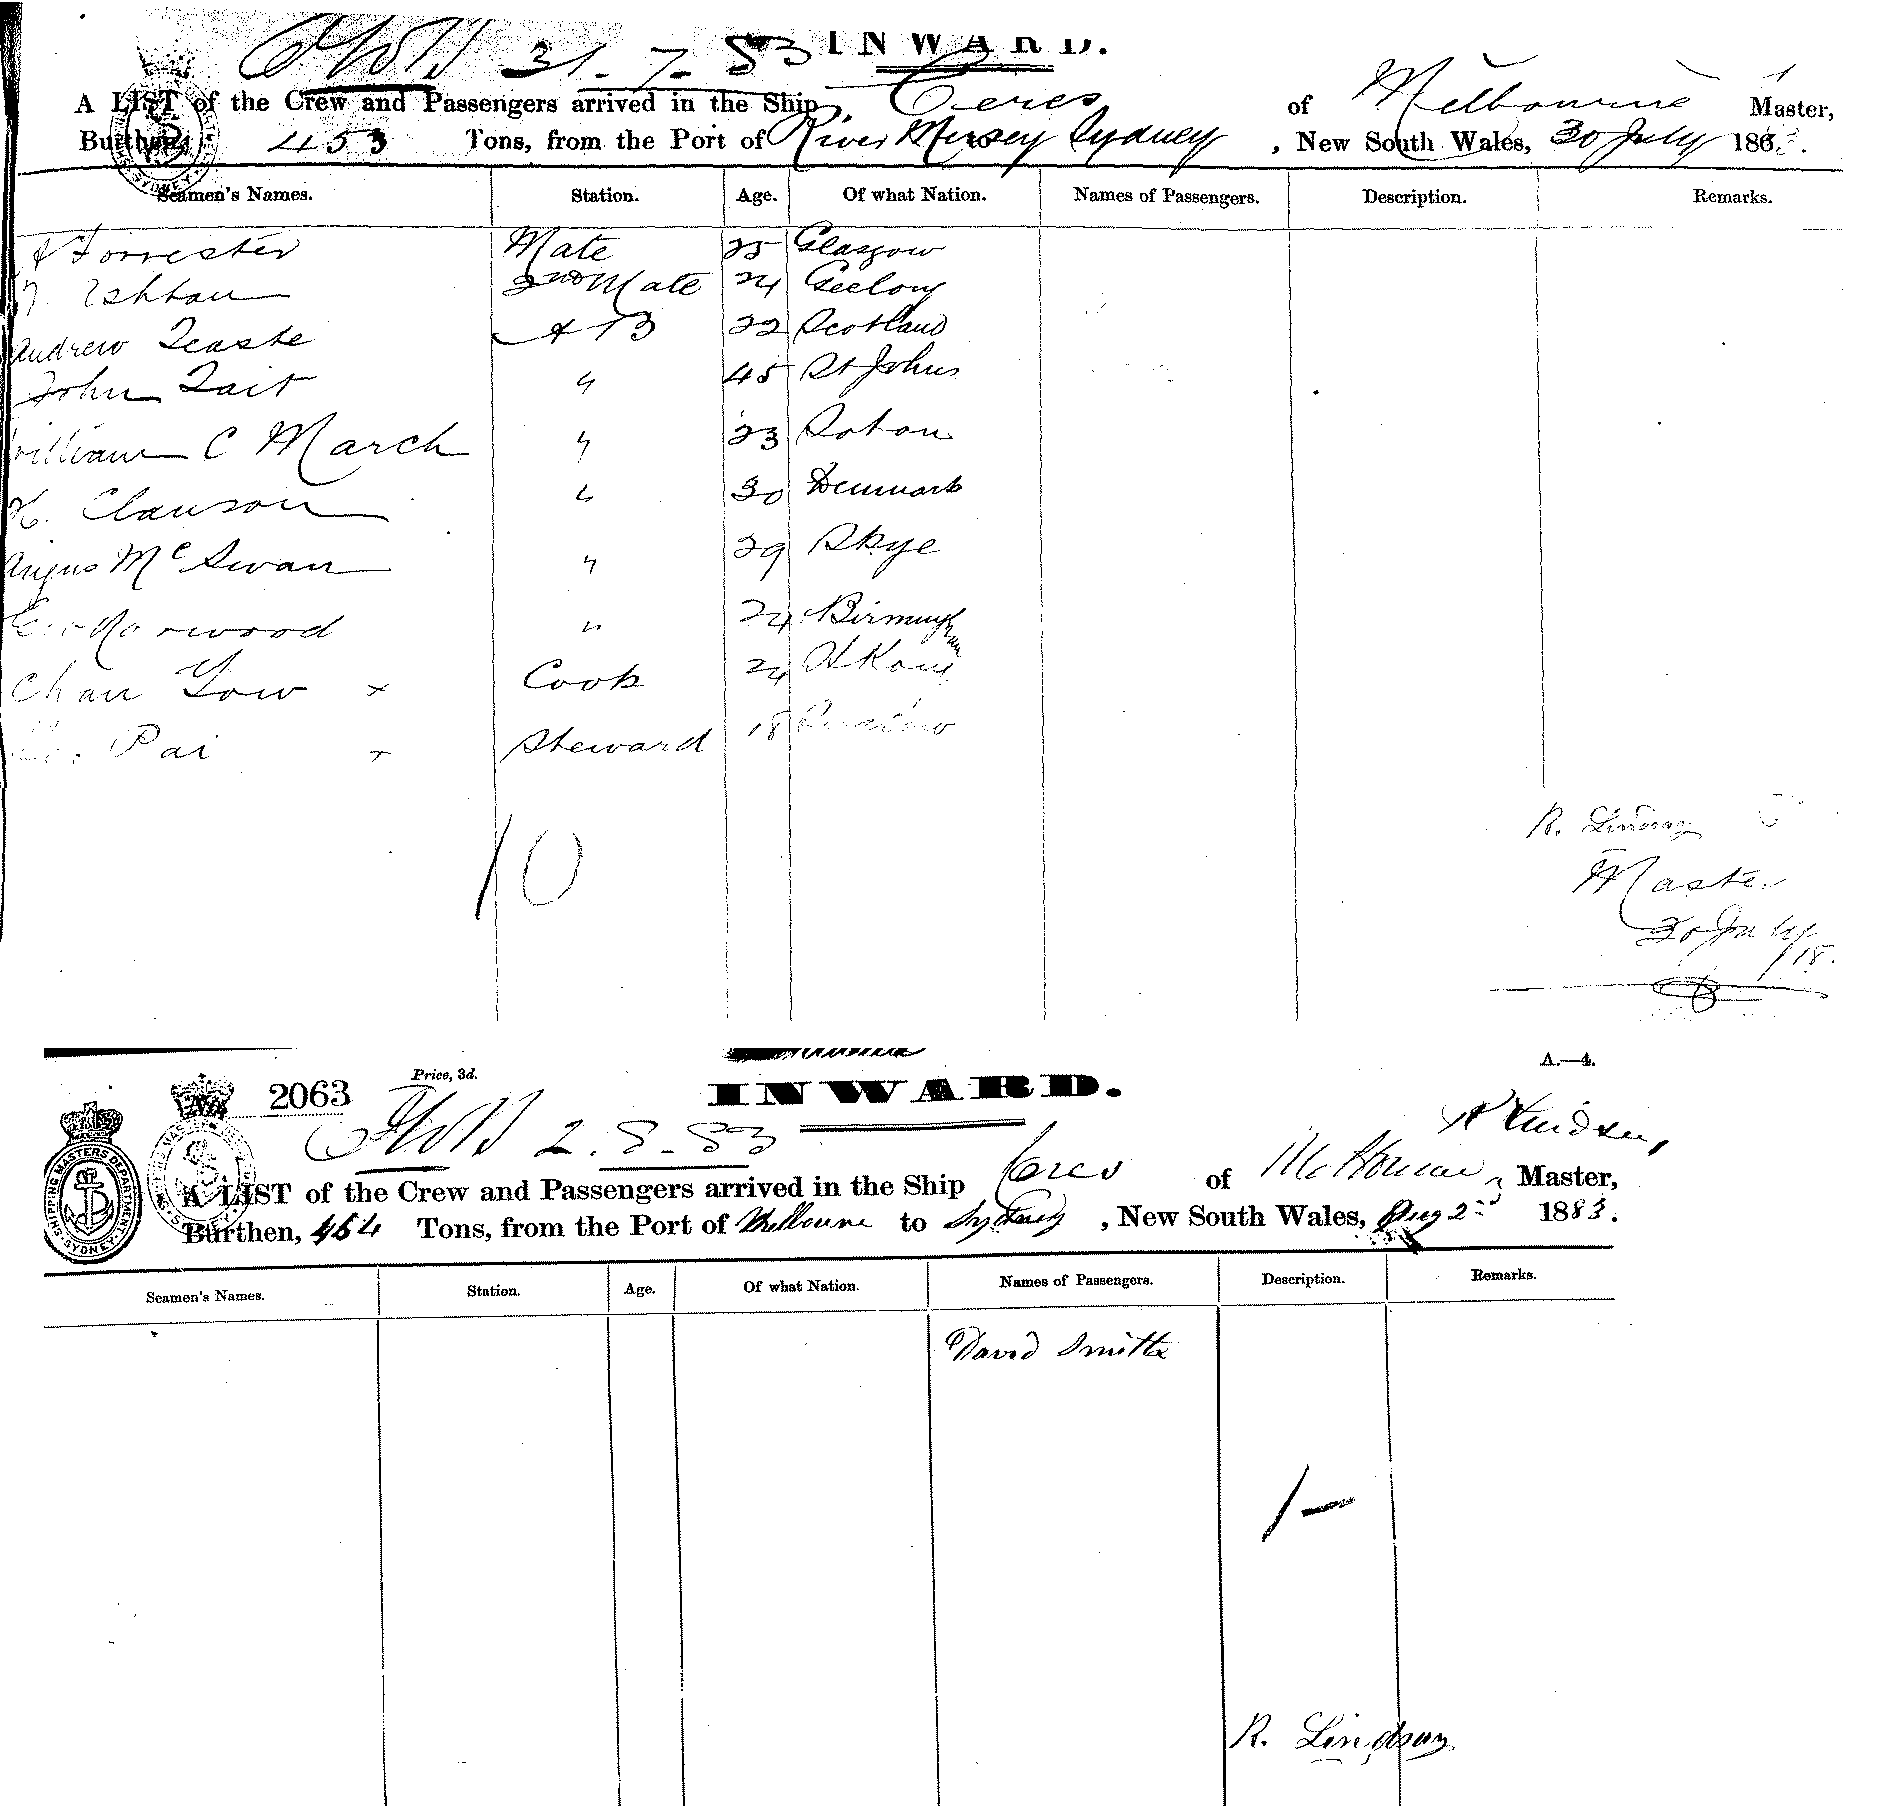 31-7-83 INWARD.
A LIST of the Crew and Passengers arrived in the Ship Ceres of Melbourne Master,
Burthen, 453 Tons, from the Port of River Mersey to Sydney, New South Wales, 30 July 1883.
Seamen's Names. Station. Age. Of what Nation. Names of Passengers. Description. Remarks.
Forrester Mate 25 Glasgow
Ashton 2nd Mate 24 Geelong
Andrew Teaste A B 22 Scotland
John Tait " 45 St Johns
William C March " 23 Soton
K. Clauson " 30 Denmark
Angus McSwan " 29 Skye
Geo Norwood " 24 Birmingham
Chan Yow x Cook 24 HKong
Pai x Steward 18
10
R. Lindsay
Master
30 July
/18.
A.—4.
Price, 3d.
2063 INWARD.
2.8-83 R Lindsay,
A LIST of the Crew and Passengers arrived in the Ship Ceres of Melbourne, Master,
Burthen, 454 Tons, from the Port of Melbourne to Sydney, New South Wales, Aug 2nd 1883.
SHIPPING MASTERS DEPARTMENT
SYDNEY
Seamen's Names. Station. Age. Of what Nation. Names of Passengers. Description. Remarks.
David Smith
1-
R. Lindsay